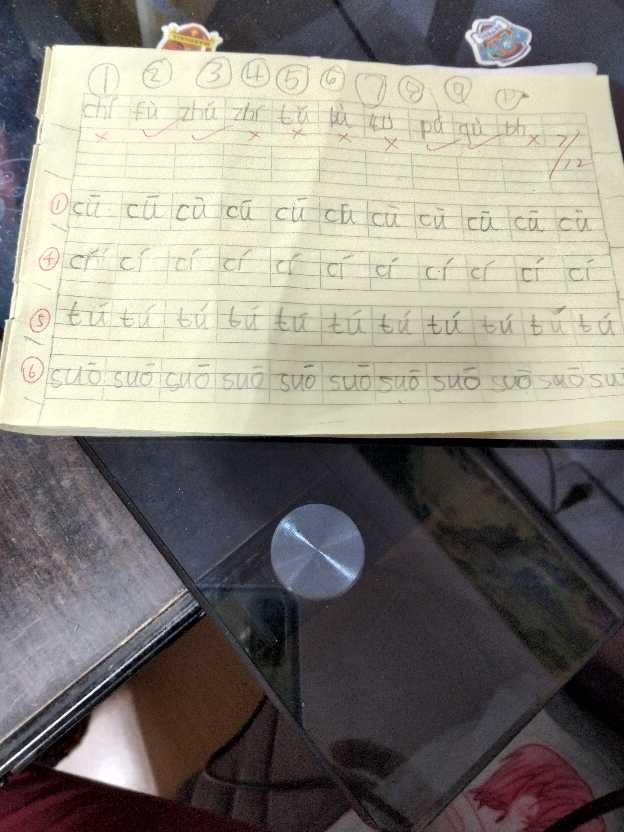 ① ② ③ ④ ⑤ ⑥ ⑦ ⑧ ⑨
chí fù zhú zhí tǔ pá qù
7/12
① cū cū cū cū cū cū cū cū cū cū cū
④ cí cí cí cí cí cí cí cí cí cí cí
⑤ tú tú tú tú tú tú tú tú tú tú tú
⑥ suō suō suō suō suō suō suō suō suō suō